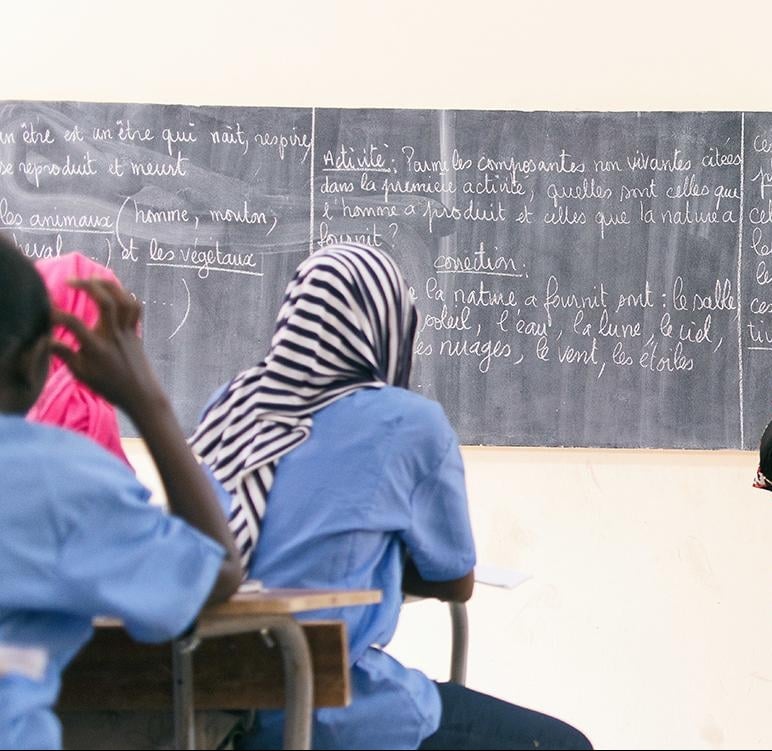 un être est un être qui nait, respire
se reproduit et meurt
les animaux (homme, mouton,
cheval ...) et les végétaux
.....)
Activité : Parmi les composantes non vivantes citées
dans la première activité, quelles sont celles que
l'homme a produit et celles que la nature a
fournit ?
correction :
la nature a fournit sont : le sable,
soleil, l'eau, la lune, le ciel,
es nuages, le vent, les étoiles